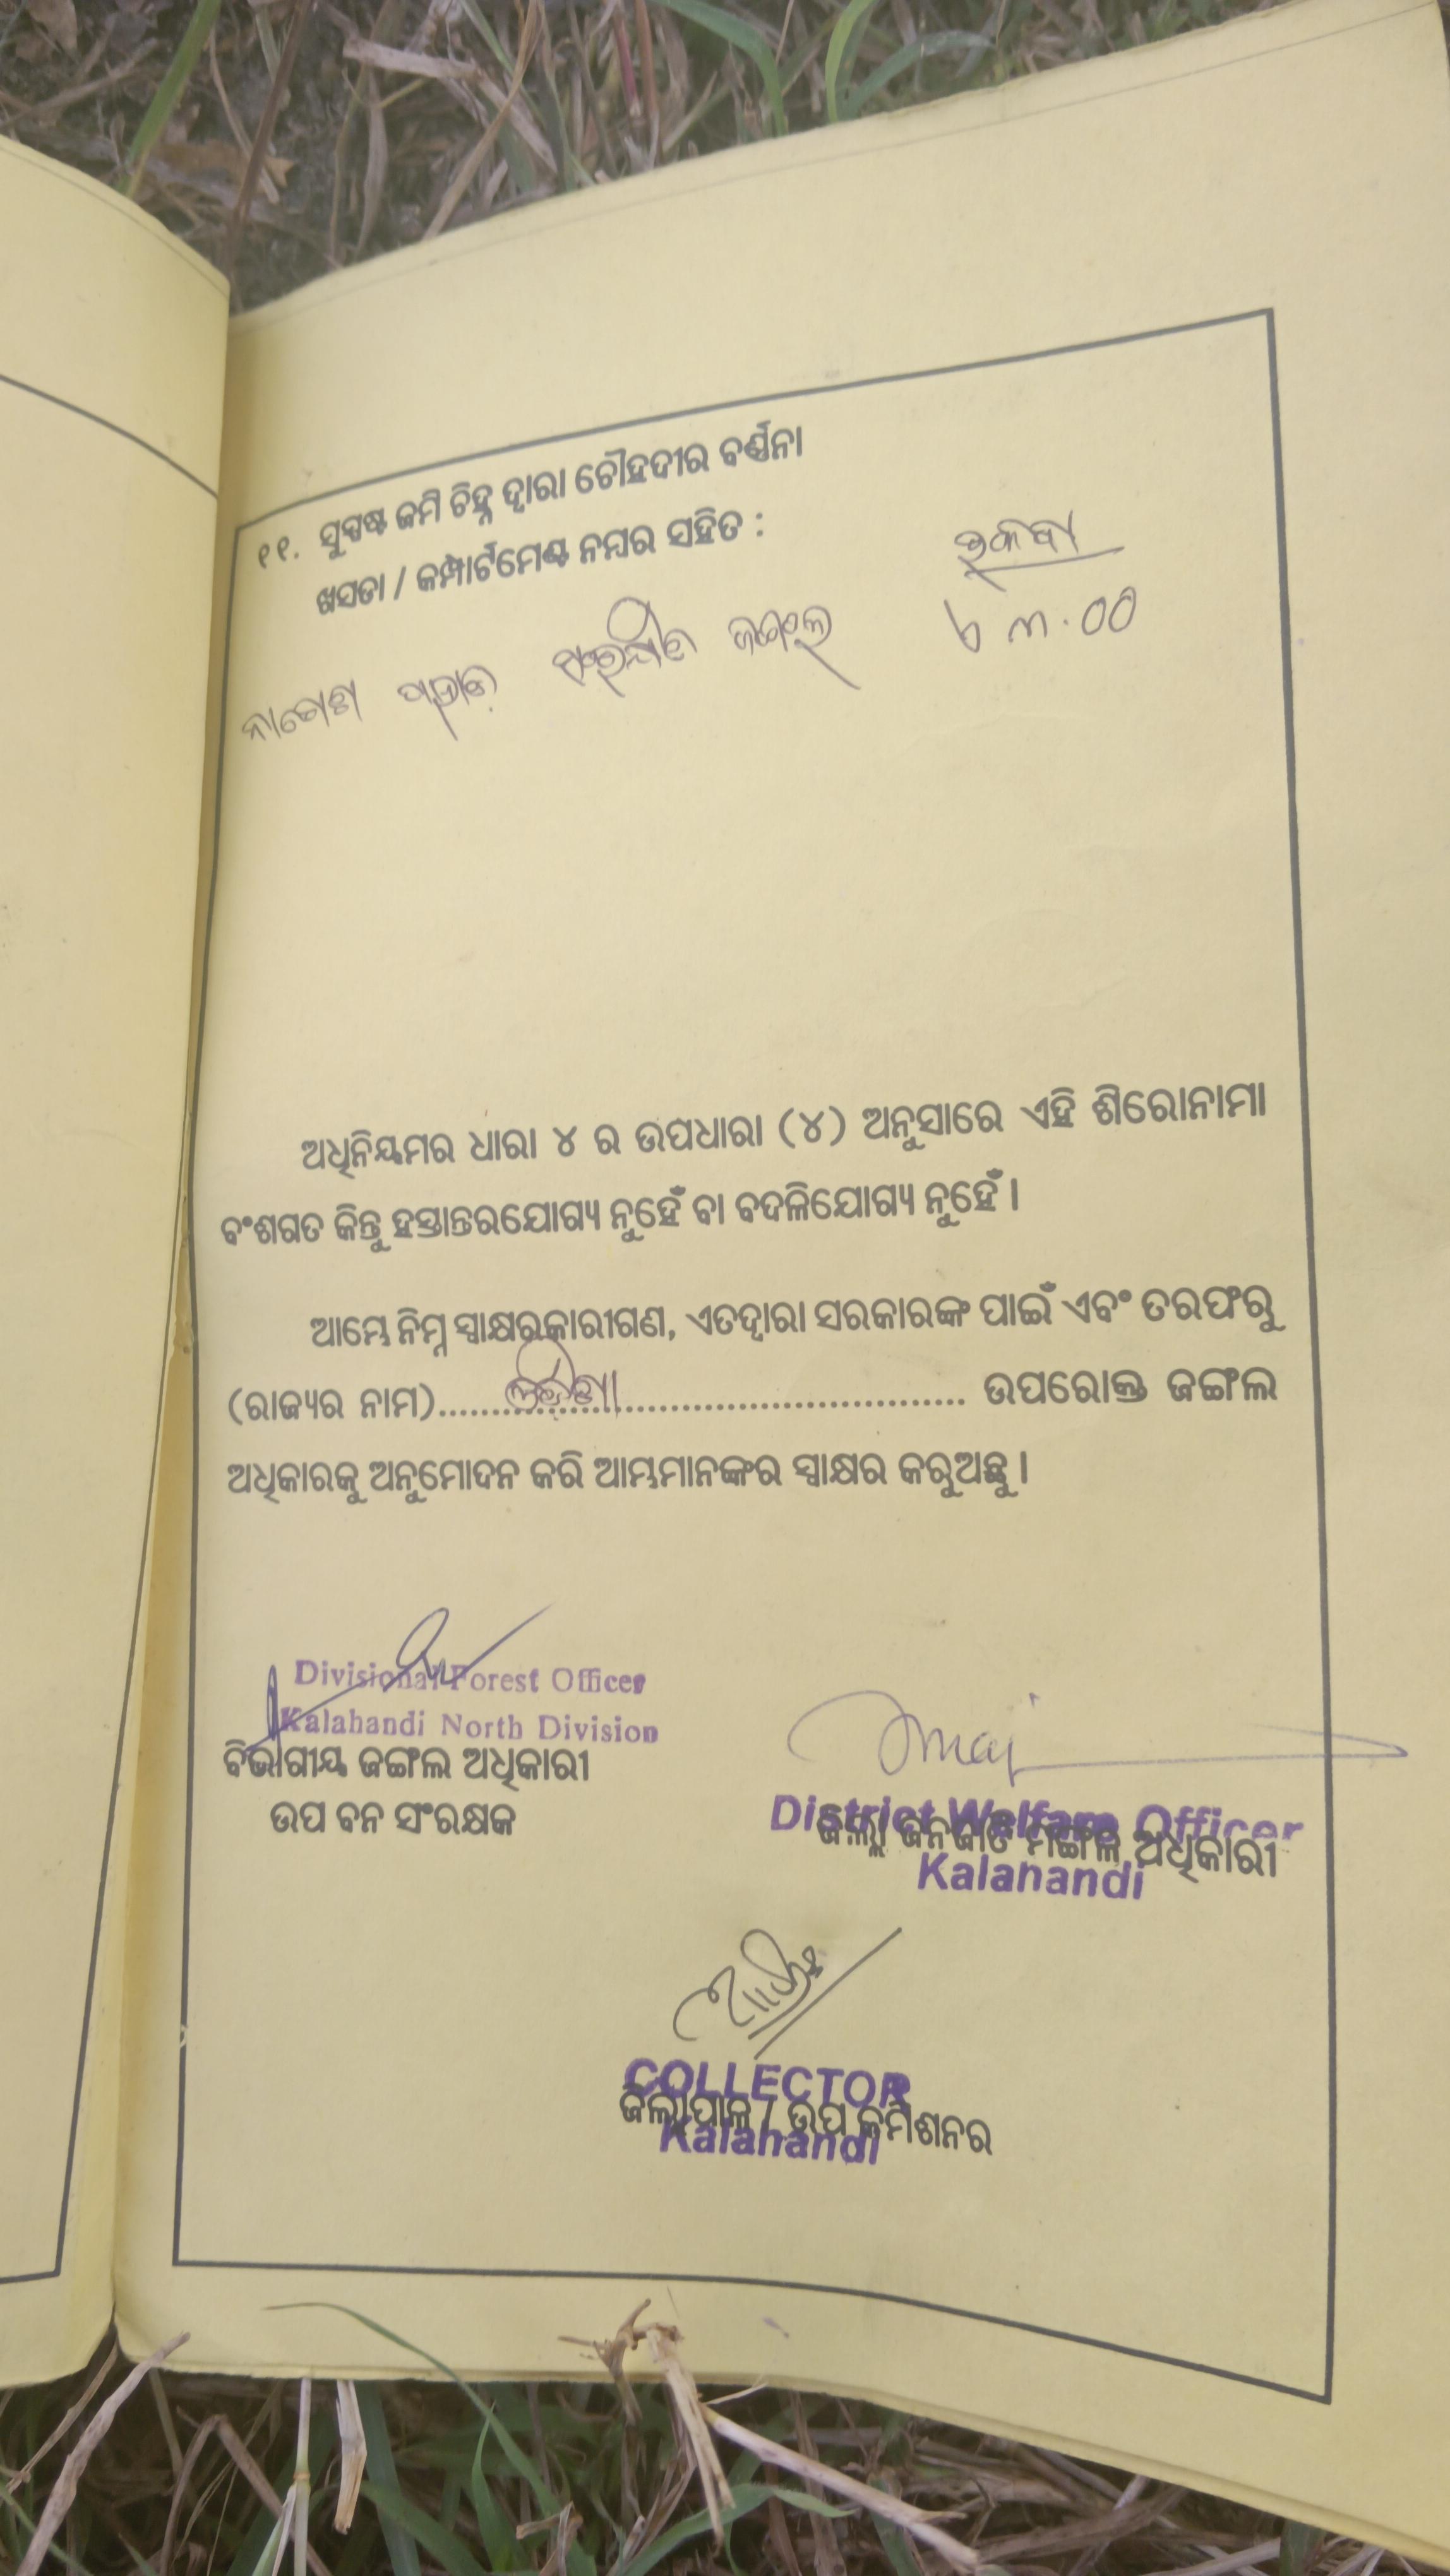 ୧୧. ସୁସ୍ପଷ୍ଟ ଜମି ଚିହ୍ନ ଦ୍ୱାରା ଚୌହଦୀର ବର୍ଣ୍ଣନା
ଖସଡା / କମ୍ପାର୍ଟମେଣ୍ଟ ନମ୍ବର ସହିତ :
ରକବା
ନାଗେଶ ପାହାଡ଼ ସଂରକ୍ଷିତ ଜଙ୍ଗଲ
ଅଧିନିୟମର ଧାରା ୪ ର ଉପଧାରା (୪) ଅନୁସାରେ ଏହି ଶିରୋନାମା
ବଂଶଗତ କିନ୍ତୁ ହସ୍ତାନ୍ତରଯୋଗ୍ୟ ନୁହେଁ ବା ବଦଳିଯୋଗ୍ୟ ନୁହେଁ ।
ଆମ୍ଭେ ନିମ୍ନ ସ୍ୱାକ୍ଷରକାରୀଗଣ, ଏତଦ୍ୱାରା ସରକାରଙ୍କ ପାଇଁ ଏବଂ ତରଫରୁ
(ରାଜ୍ୟର ନାମ)......ଓଡ଼ିଶା...... ଉପରୋକ୍ତ ଜଙ୍ଗଲ
ଅଧିକାରକୁ ଅନୁମୋଦନ କରି ଆମ୍ଭମାନଙ୍କର ସ୍ୱାକ୍ଷର କରୁଅଛୁ ।
Divisional Forest Officer
Kalahandi North Division
ବିଭାଗୀୟ ଜଙ୍ଗଲ ଅଧିକାରୀ
ଉପ ବନ ସଂରକ୍ଷକ
District Welfare Officer
ଜିଲ୍ଲା ଜନଜାତି ମଙ୍ଗଳ ଅଧିକାରୀ
Kalahandi
COLLECTOR
ଜିଲ୍ଲାପାଳ / ଉପ କମିଶନର
Kalahandi